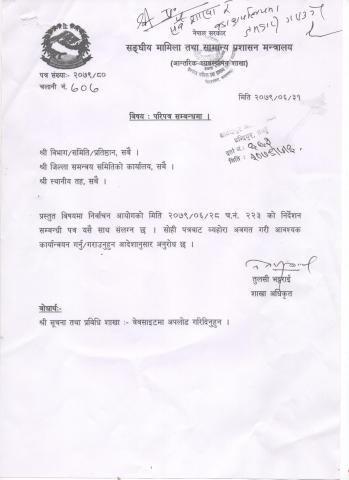 नेपाल सरकार
सङ्घीय मामिला तथा सामान्य प्रशासन मन्त्रालय
(आन्तरिक व्यवस्थापन शाखा)
पत्र संख्याः- २०७९/८०
चलानी नं. ६०६
मिति २०७९/०६/३१
विषय : परिपत्र सम्बन्धमा ।
श्री विभाग/समिति/प्रतिष्ठान, सबै ।
श्री जिल्ला समन्वय समितिको कार्यालय, सबै ।
श्री स्थानीय तह, सबै ।
प्रस्तुत विषयमा निर्वाचन आयोगको मिति २०७९/०६/२८ च.नं. २२३ को निर्देशन
सम्बन्धी पत्र यसै साथ संलग्न छ । सोही पत्रबाट व्यहोरा अवगत गरी आवश्यक
कार्यान्वयन गर्नु/गराउनुहुन आदेशानुसार अनुरोध छ ।
तुलसी भट्टराई
शाखा अधिकृत
बोधार्थः-
श्री सूचना तथा प्रविधि शाखा :- वेवसाइटमा अपलोड गरिदिनुहुन ।